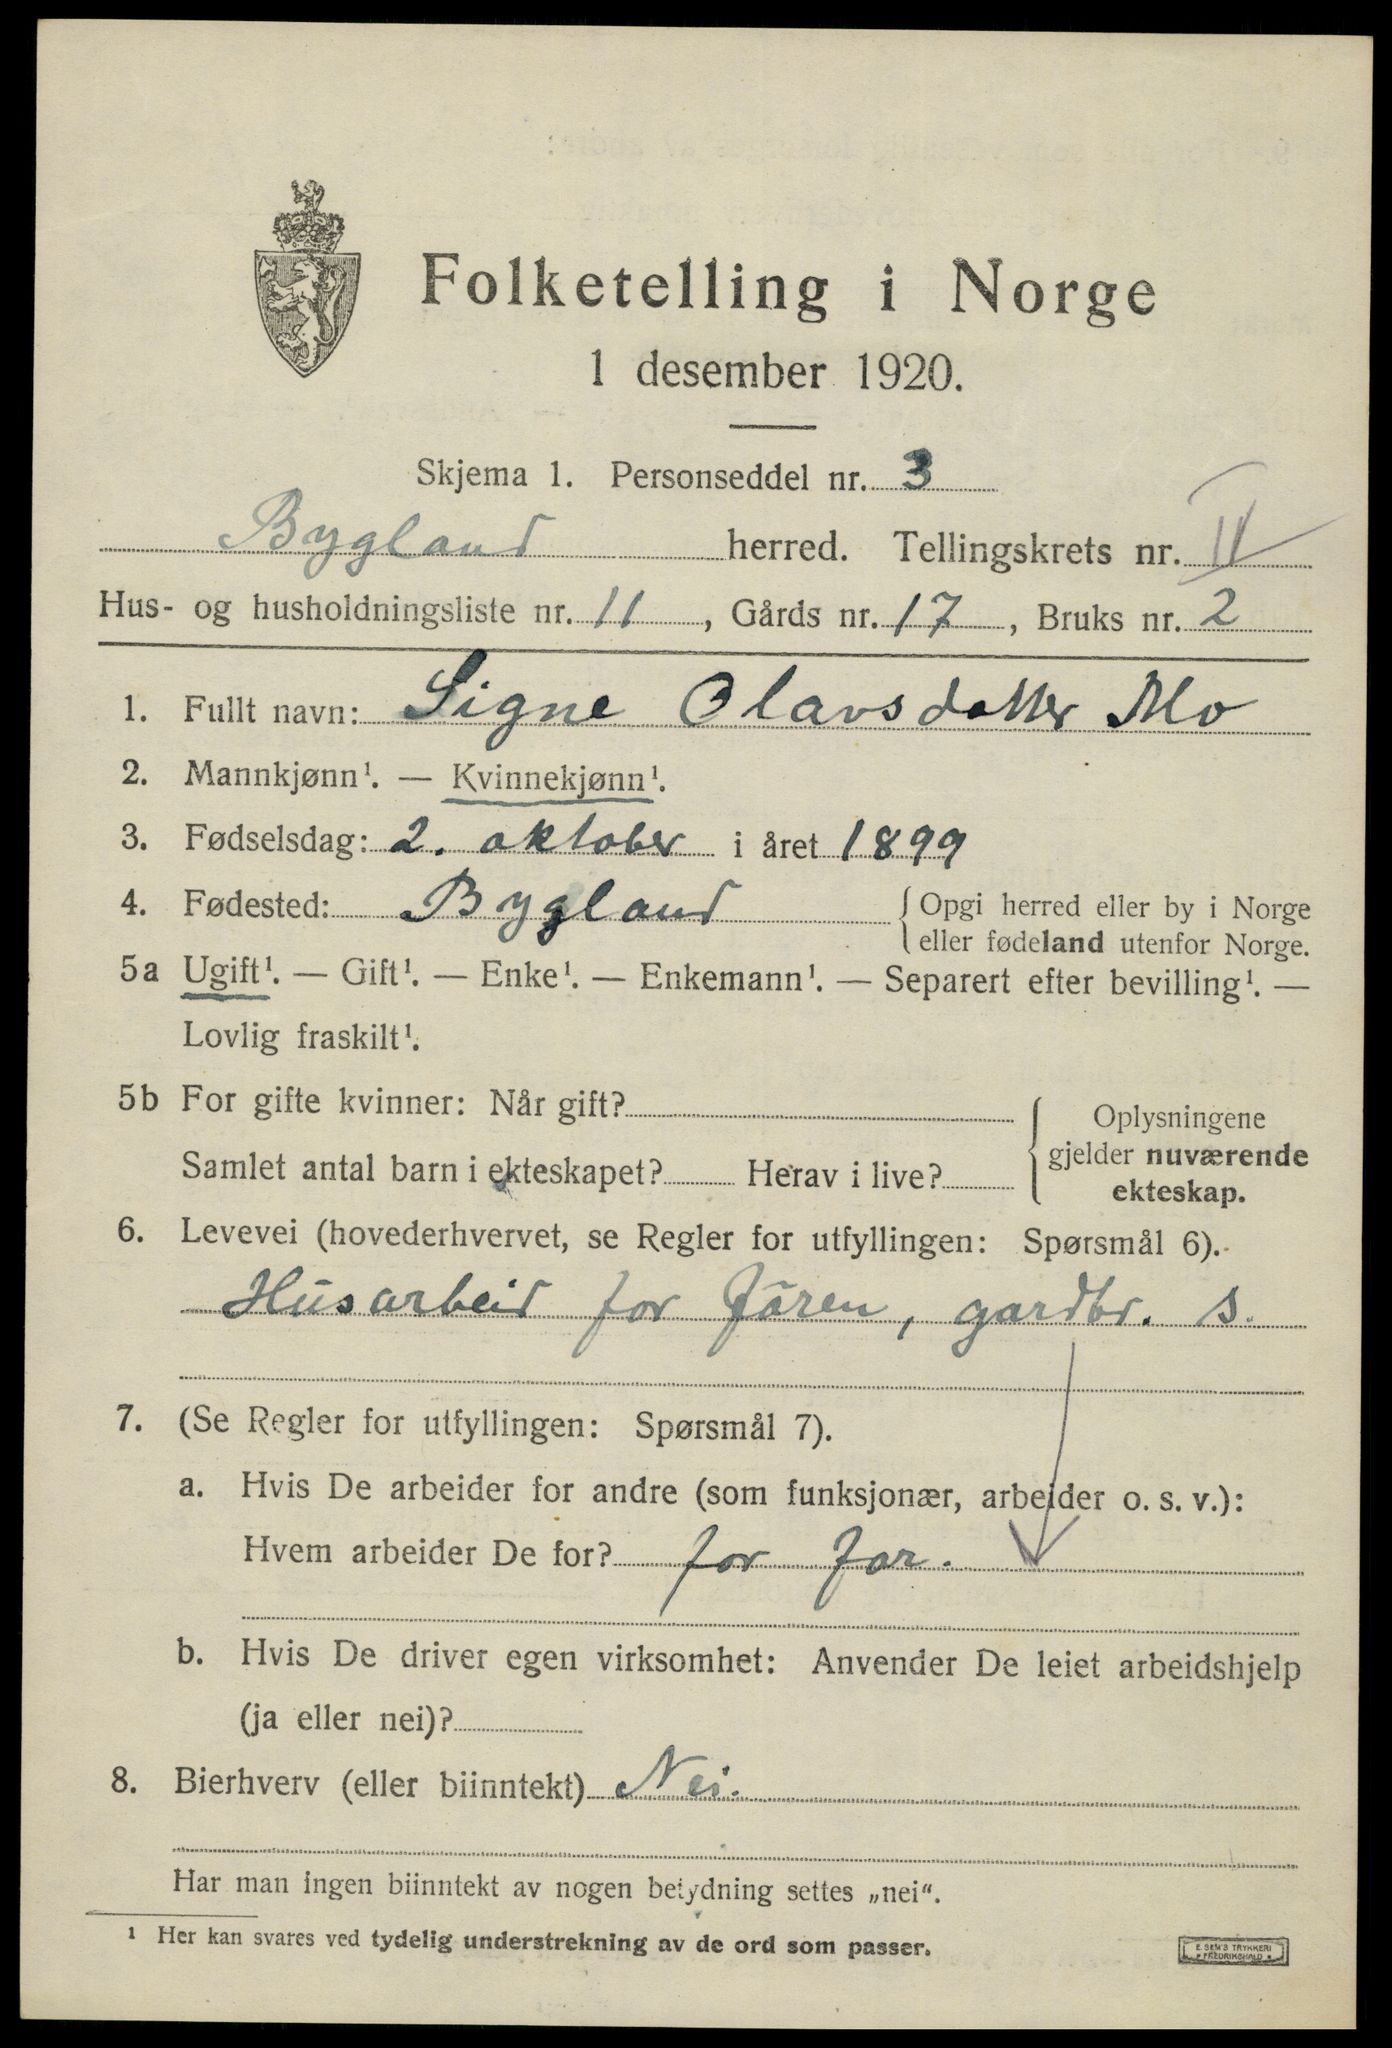 Folketelling i Norge
1 desember 1920.
Skjema 1. Personseddel nr. 3
Bygland herred. Tellingskrets nr. II
Hus- og husholdningsliste nr. 11, Gårds nr. 17, Bruks nr. 2
1. Fullt navn: Signe Olavsdatter Mo
2. Mannkjønn¹. — Kvinnekjønn¹.
3. Fødselsdag: 2. oktober i året 1899
4. Fødested: Bygland { Opgi herred eller by i Norge
eller fødeland utenfor Norge.
5a Ugift¹. — Gift¹. — Enke¹. — Enkemann¹. — Separert efter bevilling¹. —
Lovlig fraskilt¹.
5b For gifte kvinner: Når gift? { Oplysningene
gjelder nuværende
ekteskap.
Samlet antal barn i ekteskapet? Herav i live?
6. Levevei (hovederhvervet, se Regler for utfyllingen: Spørsmål 6).
Husarbeid for Fåren, gardbr. s.
7. (Se Regler for utfyllingen: Spørsmål 7).
a. Hvis De arbeider for andre (som funksjonær, arbeider o. s. v.):
Hvem arbeider De for? for far.
b. Hvis De driver egen virksomhet: Anvender De leiet arbeidshjelp
(ja eller nei)?
8. Bierhverv (eller biinntekt) Nei.
Har man ingen biinntekt av nogen betydning settes „nei“.
¹ Her kan svares ved tydelig understrekning av de ord som passer.
E. SEM'S TRYKKERI
FREDRIKSHALD